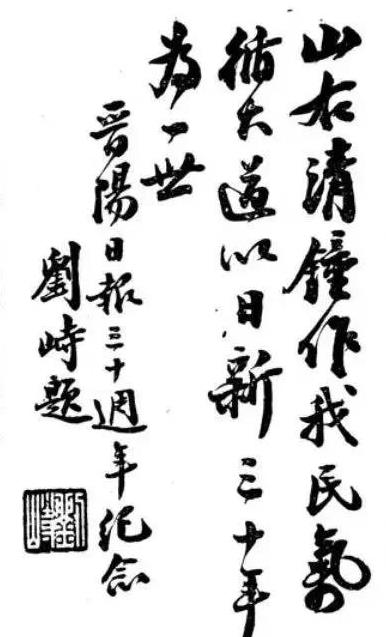 山右清鐘作我民氣
循大道以日新三十年
為一世
晋陽日報三十週年紀念
劉峙題